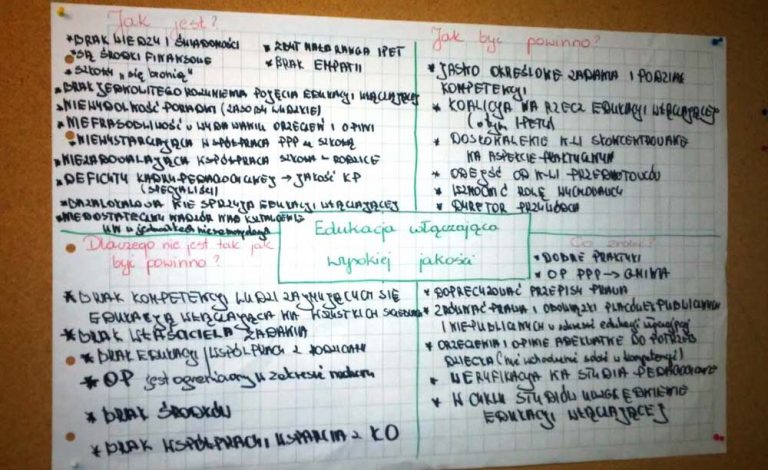 Jak jest?
* BRAK WIEDZY I ŚWIADOMOŚCI
* SĄ ŚRODKI FINANSOWE
* SZKOŁY "się bronią"
* ZBYT MAŁA RANGA IPET
* BRAK EMPATII
* BRAK JEDNOLITEGO ROZUMIENIA POJĘCIA EDUKACJI WŁĄCZAJĄCEJ
* NIEWYDOLNOŚĆ PORADNI (ZASOBY LUDZKIE)
* NIEFRASOBLIWOŚĆ W WYDAWANIU ORZECZEŃ I OPINII
* NIEWYSTARCZAJĄCA WSPÓŁPRACA PPP ze SZKOŁĄ
* NIEZADOWALAJĄCA WSPÓŁPRACA SZKOŁA – RODZICE
* DEFICYTY KADRY PEDAGOGICZNEJ → JAKOŚĆ KP
(SPECJALIŚCI)
NIE SPRZYJA EDUKACJI WŁĄCZAJĄCEJ
* NIEDOSTATECZNY NADZÓR NAD
Jak być powinno?
* JASNO OKREŚLONE ZADANIA I PODZIAŁ
KOMPETENCJI
* KOALICJA NA RZECZ EDUKACJI WŁĄCZAJĄCEJ
* DOSKONALENIE N-LI SKONCENTROWANE
NA ASPEKCIE PRAKTYCZNYM
* ODEJŚĆ OD N-LI PRZEDMIOTOWCÓW
* WZMOCNIĆ ROLĘ WYCHOWAWCY
* DYREKTOR PRZYWÓDCA
Edukacja włączająca
wysokiej jakości
Dlaczego nie jest tak jak
być powinno?
* BRAK KOMPETENCJI LUDZI ZAJMUJĄCYCH SIĘ
EDUKACJĄ WŁĄCZAJĄCĄ NA WSZYSTKICH
* BRAK WŁAŚCICIELA ZADANIA
* BRAK EDUKACJI I WSPÓŁPRACY Z RODZICAMI
* OP jest ograniczony w zakresie nadzoru
* BRAK ŚRODKÓW
* BRAK WSPÓŁPRACY I WSPARCIA Z KO
Co zrobić?
* DOBRE PRAKTYKI
* OP PPP → GMINA
* DOPRECYZOWAĆ PRZEPISY PRAWA
* ZRÓWNAĆ PRAWA I OBOWIĄZKI PLACÓWEK PUBLICZNYCH
I NIEPUBLICZNYCH w zakresie edukacji włączającej
* ORZECZENIA I OPINIE ADEKWATNE DO POTRZEB
DZIECKA (nie wchodzenie sobie w kompetencje)
* WERYFIKACJA NA STUDIA PEDAGOGICZNE
* W CYKLU STUDIÓW UWZGLĘDNIENIE
EDUKACJI WŁĄCZAJĄCEJ